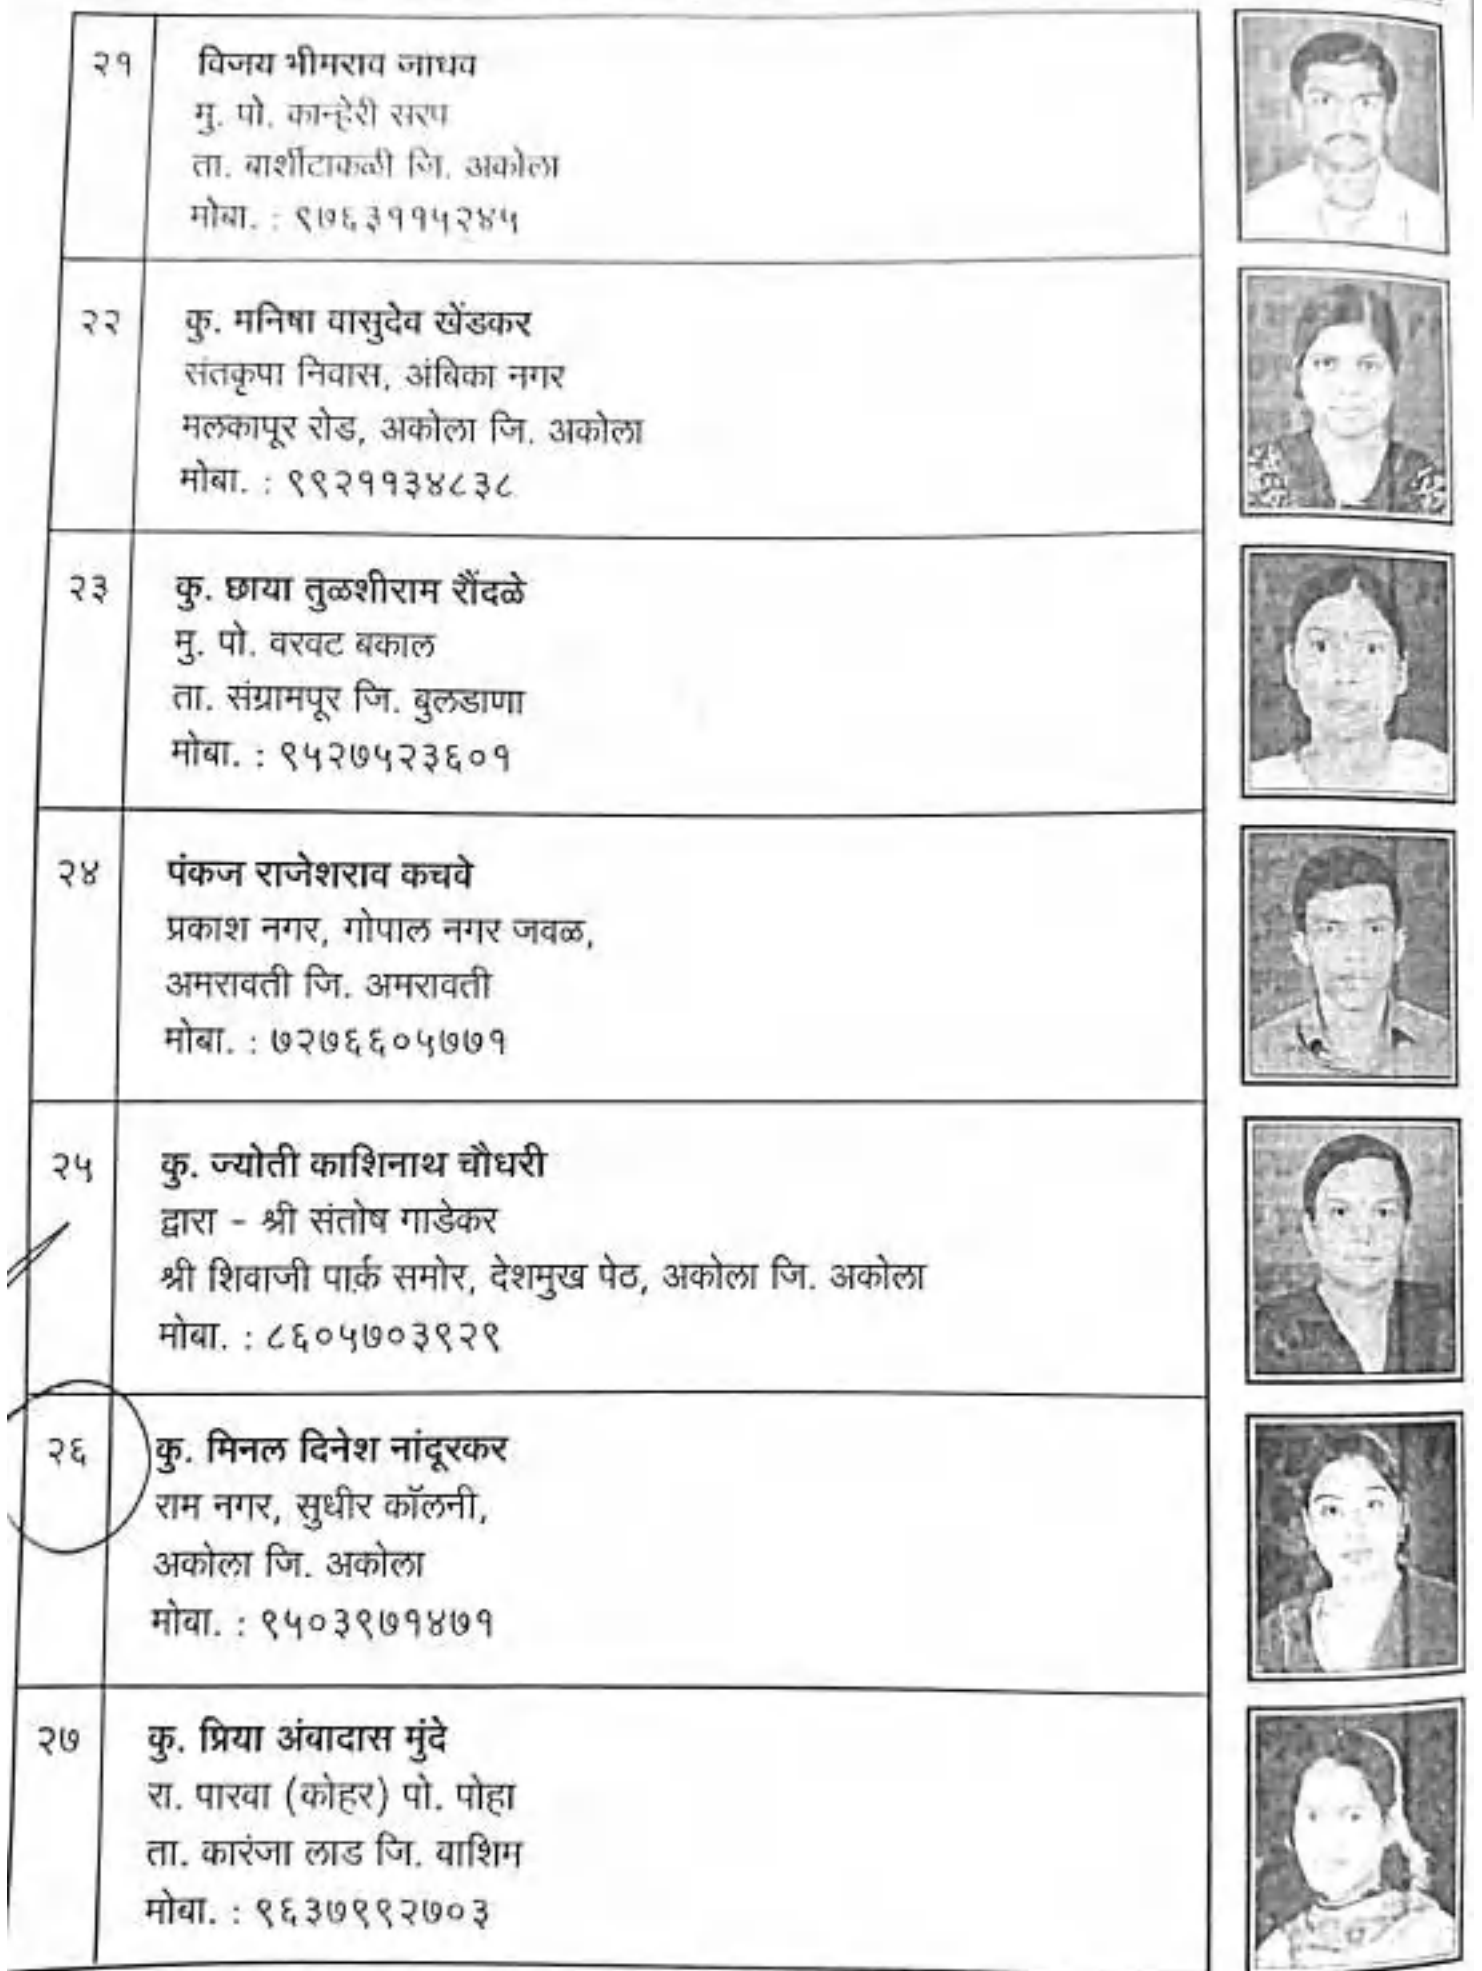 २१
विजय भीमराव जाधव
मु. पो. कान्हेरी सरप
ता. बार्शीटाकळी जि. अकोला
मोबा. : ९७६३११५२४५
२२
कु. मनिषा वासुदेव खेंडकर
संतकृपा निवास, अंबिका नगर
मलकापूर रोड, अकोला जि. अकोला
मोबा. : ९९२११३४८३८
२३
कु. छाया तुळशीराम रौंदळे
मु. पो. वरवट बकाल
ता. संग्रामपूर जि. बुलडाणा
मोबा. : ९५२७५२३६०१
२४
पंकज राजेशराव कचवे
प्रकाश नगर, गोपाल नगर जवळ,
अमरावती जि. अमरावती
मोबा. : ७२७६६०५७७१
२५
कु. ज्योती काशिनाथ चौधरी
द्वारा - श्री संतोष गाडेकर
श्री शिवाजी पार्क समोर, देशमुख पेठ, अकोला जि. अकोला
मोबा. : ८६०५७०३९२९
२६
कु. मिनल दिनेश नांदूरकर
राम नगर, सुधीर कॉलनी,
अकोला जि. अकोला
मोबा. : ९५०३९७१४७१
२७
कु. प्रिया अंबादास मुंदे
रा. पारवा (कोहर) पो. पोहा
ता. कारंजा लाड जि. वाशिम
मोबा. : ९६३७९९२७०३